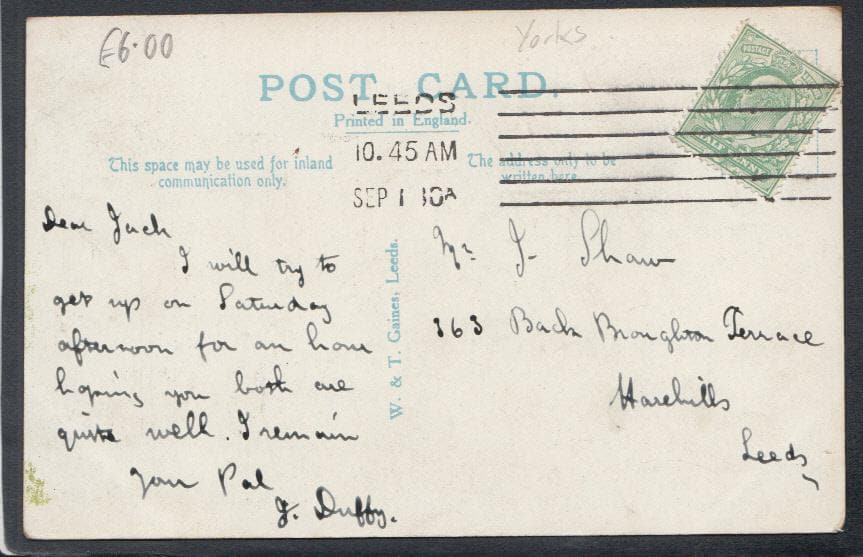 £6.00
Yorks
POST CARD.
LEEDS
Printed in England.
10.45 AM
SEP 1 10A
This space may be used for inland
communication only.
The address only to be
written here
POSTAGE
Dear Jack
I will try to
get up on Saturday
afternoon for an hour
hoping you both are
quite well. I remain
Your Pal
J. Duffy.
W. & T. Gaines, Leeds.
Mr J Shaw
363 Back Broughton Terrace
Harehills
Leeds